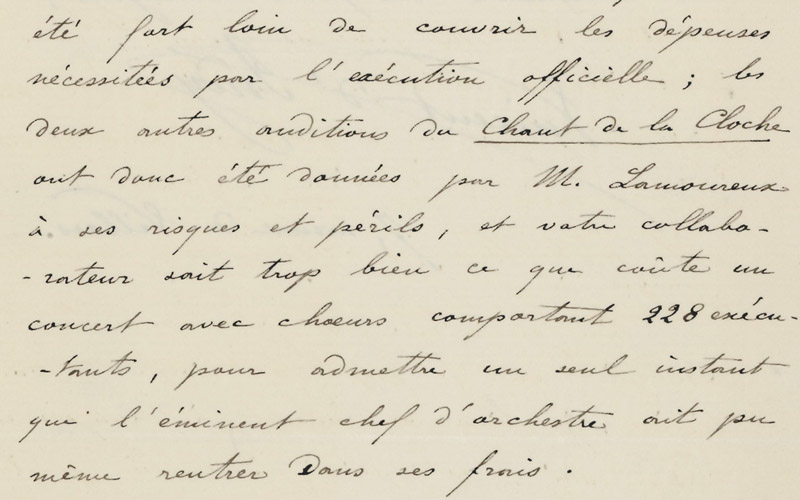 été fort loin de couvrir les dépenses
nécessitées par l'exécution officielle ; les
deux autres auditions du Chant de la Cloche
ont donc été données par M. Lamoureux
à ses risques et périls, et votre collabo-
-rateur sait trop bien ce que coûte un
concert avec chœurs comportant 228 exécu-
-tants, pour admettre un seul instant
que l'éminent chef d'orchestre ait pu
même rentrer dans ses frais.